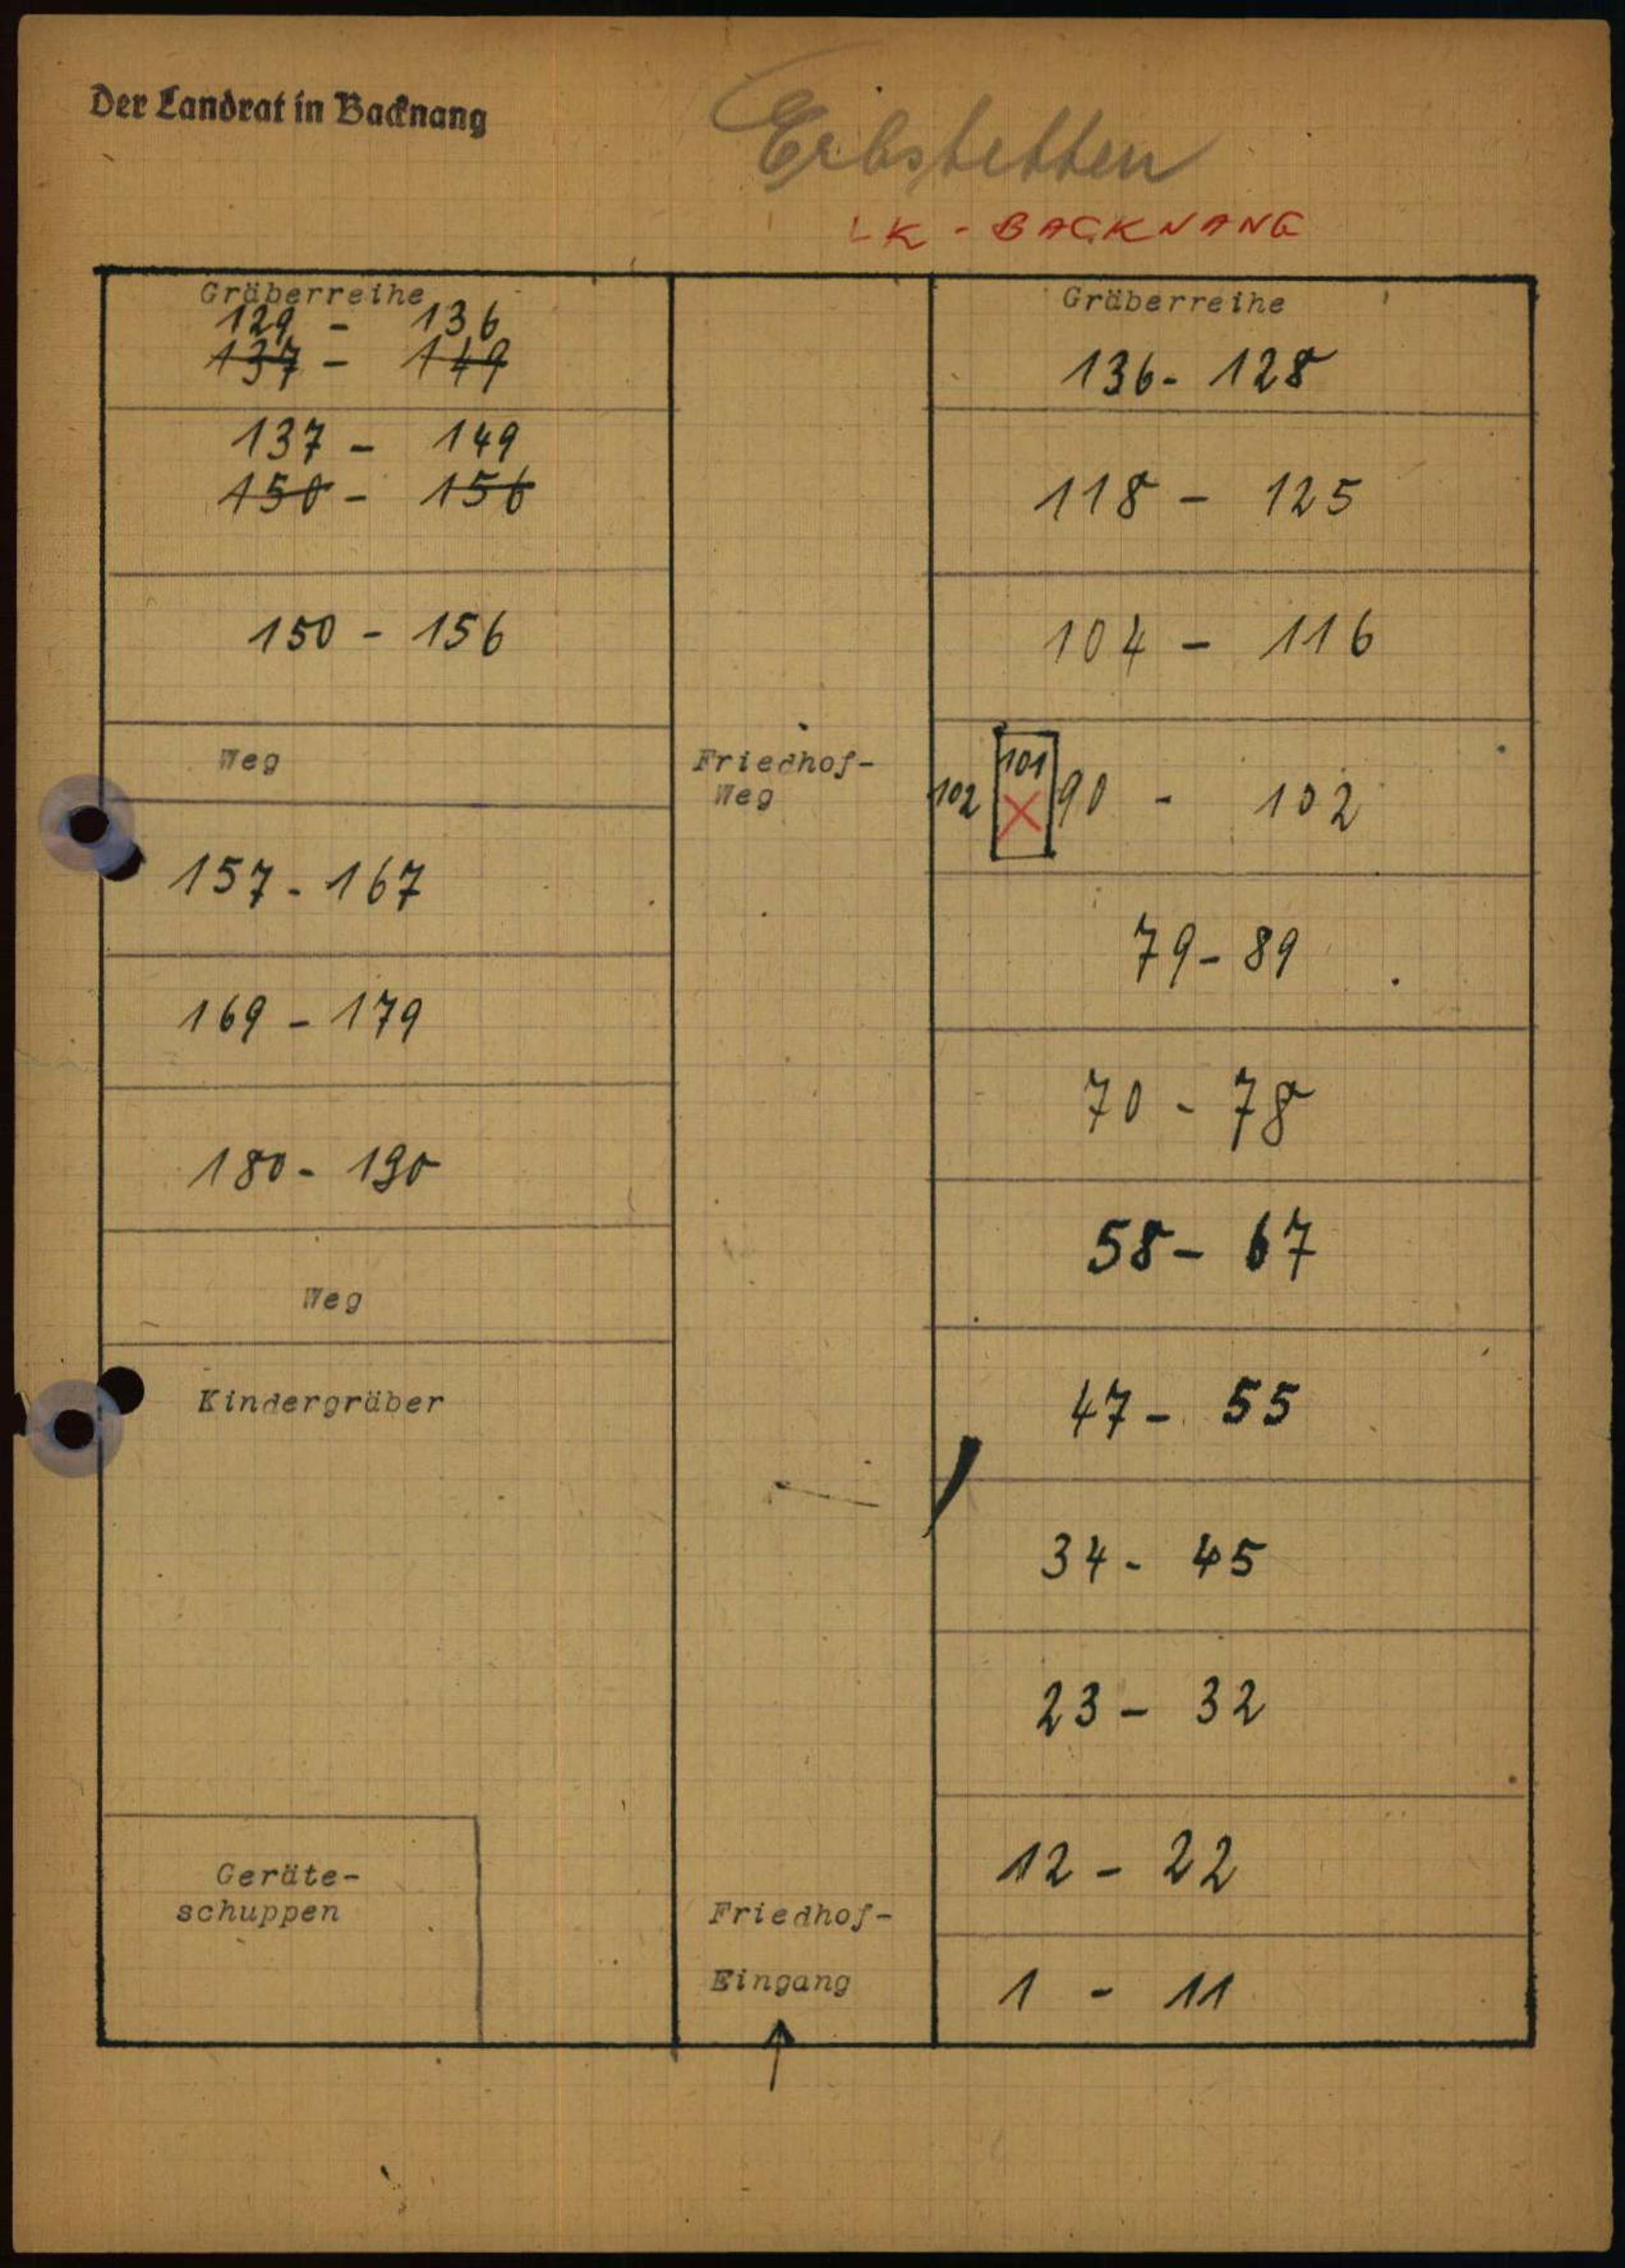 Der Landrat in Backnang
Erbstetten
LK - BACKNANG
Gräberreihe
129 - 136
137 - 149
137 - 149
150 - 156
150 - 156
Weg
157 - 167
169 - 179
180 - 190
Weg
Kindergräber
Geräte-
schuppen
Friedhof-
Weg
Friedhof-
Eingang
Gräberreihe
136 - 128
118 - 125
104 - 116
102 101 90 - 102
79 - 89
70 - 78
58 - 67
47 - 55
34 - 45
23 - 32
12 - 22
1 - 11